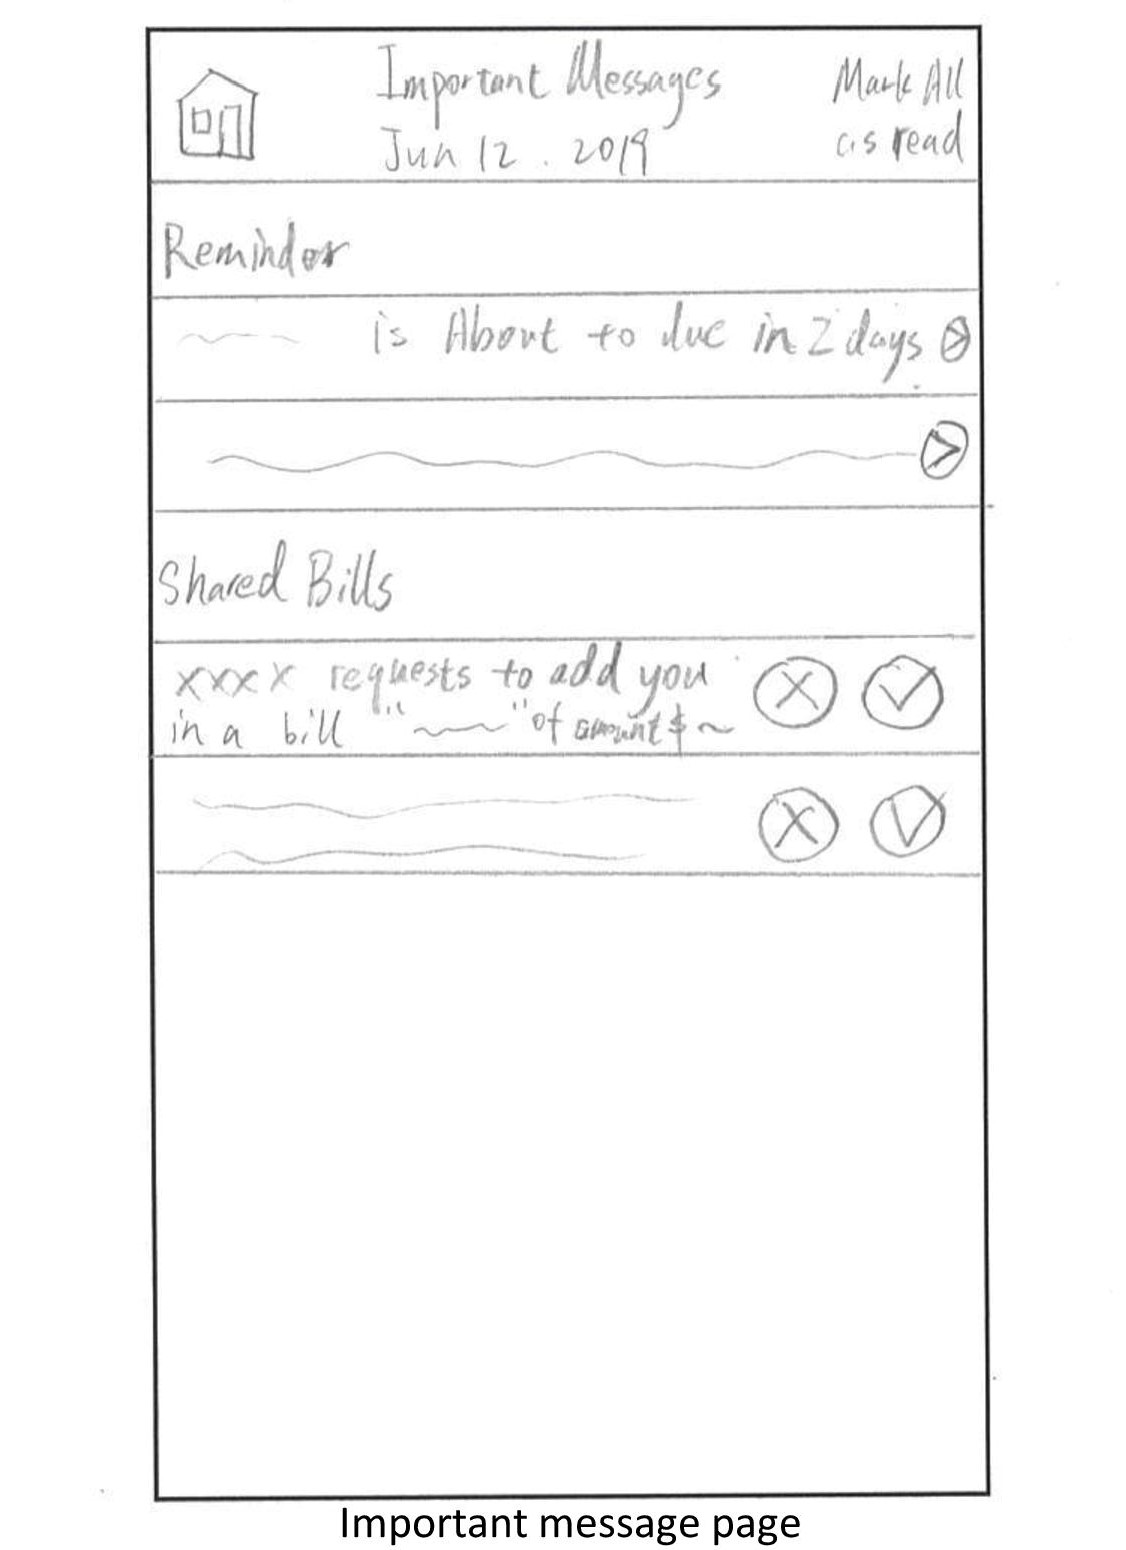 Important Messages
Jun 12 . 2019
Mark All
as read
Reminder
is About to due in 2 days
Shared Bills
xxxx requests to add you
in a bill " " of amount $ ~
Important message page